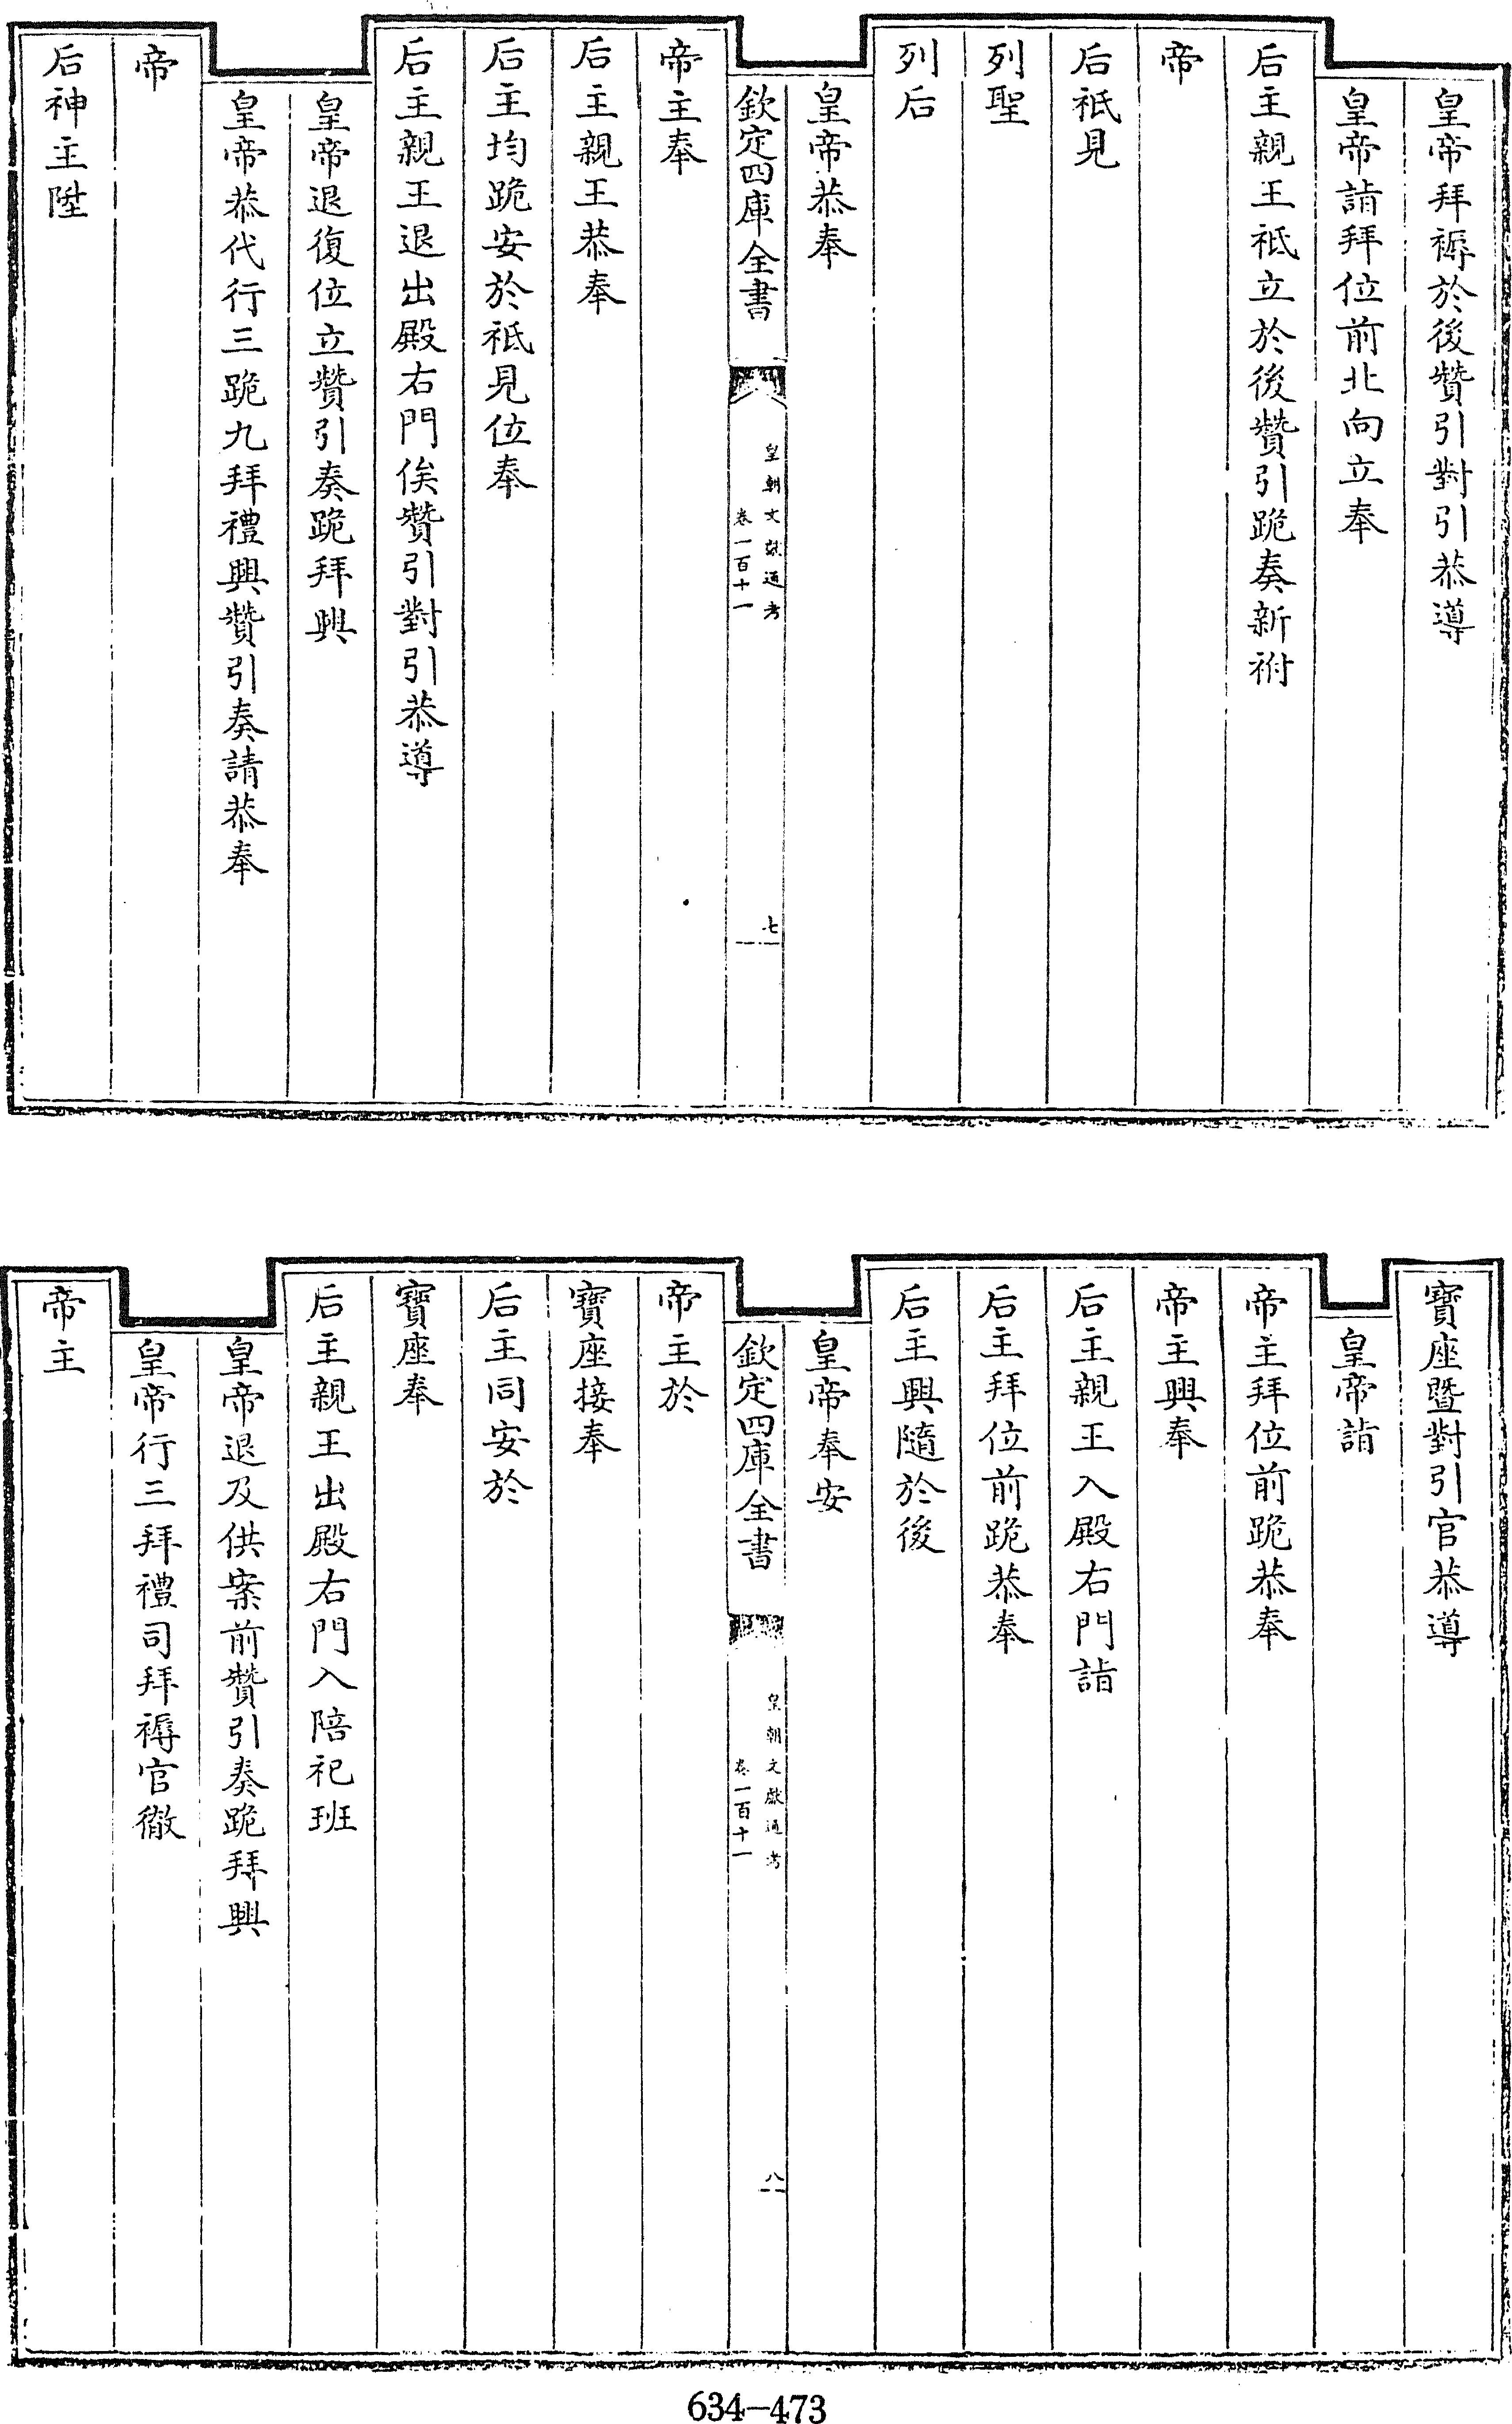 皇帝拜褥於後贊引對引恭導
皇帝詣拜位前北向立奉
后主親王祗立於後贊引跪奏新祔
帝
后祗見
列聖
列后
皇帝恭奉
欽定四庫全書
皇朝文獻通考
卷一百十一
七
帝主奉
后主親王恭奉
后主均跪安於祗見位奉
后主親王退出殿右門俟贊引對引恭導
皇帝退復位立贊引奏跪拜興
皇帝恭代行三跪九拜禮興贊引奏請恭奉
帝
后神主陞
寶座暨對引官恭導
皇帝詣
帝主拜位前跪恭奉
帝主興奉
后主親王入殿右門詣
后主拜位前跪恭奉
后主興隨於後
皇帝奉安
欽定四庫全書
皇朝文獻通考
卷一百十一
八
帝主於
寶座接奉
后主同安於
寶座奉
后主親王出殿右門入陪祀班
皇帝退及供案前贊引奏跪拜興
皇帝行三拜禮司拜褥官徹
帝主
634-473